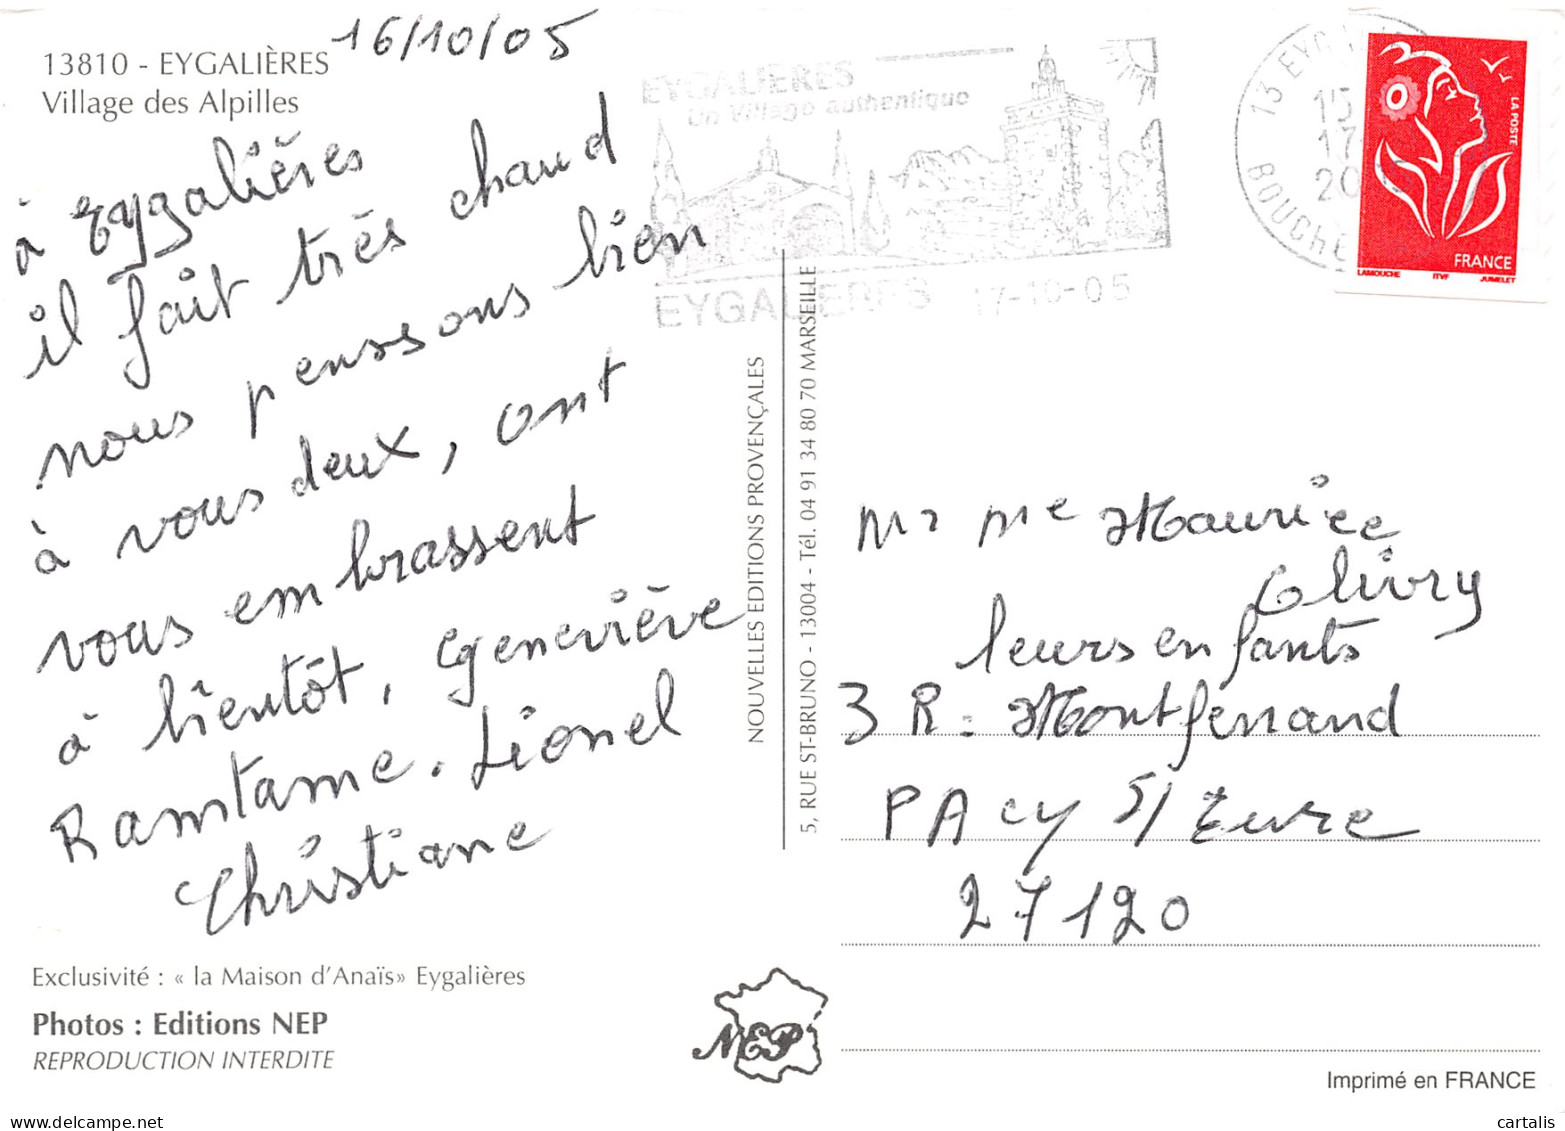 13810 - EYGALIÈRES
Village des Alpilles
16/10/05
à Eygalières
il fait très chaud
nous penssons bien
à vous deux, ont
vous embrassent
à bientôt, Geneviève
Ramtame. Lionel
Christiane
Exclusivité : « la Maison d'Anaïs» Eygalières
Photos : Editions NEP
REPRODUCTION INTERDITE
NOUVELLES EDITIONS PROVENÇALES
5, RUE ST-BRUNO - 13004 - Tél. 04 91 34 80 70 MARSEILLE
NEP
EYGALIERES
Un Village authentique
EYGALIERES 17-10-05
13 EYGALI
15
17
20
BOUCHE
LA POSTE
FRANCE
LAMOUCHE ITVF JUMELET
Mr Me Maurice
Olivry
leurs enfants
3 R. Montferrand
PAcy S/ Eure
27120
Imprimé en FRANCE
cartalis
delcampe.net